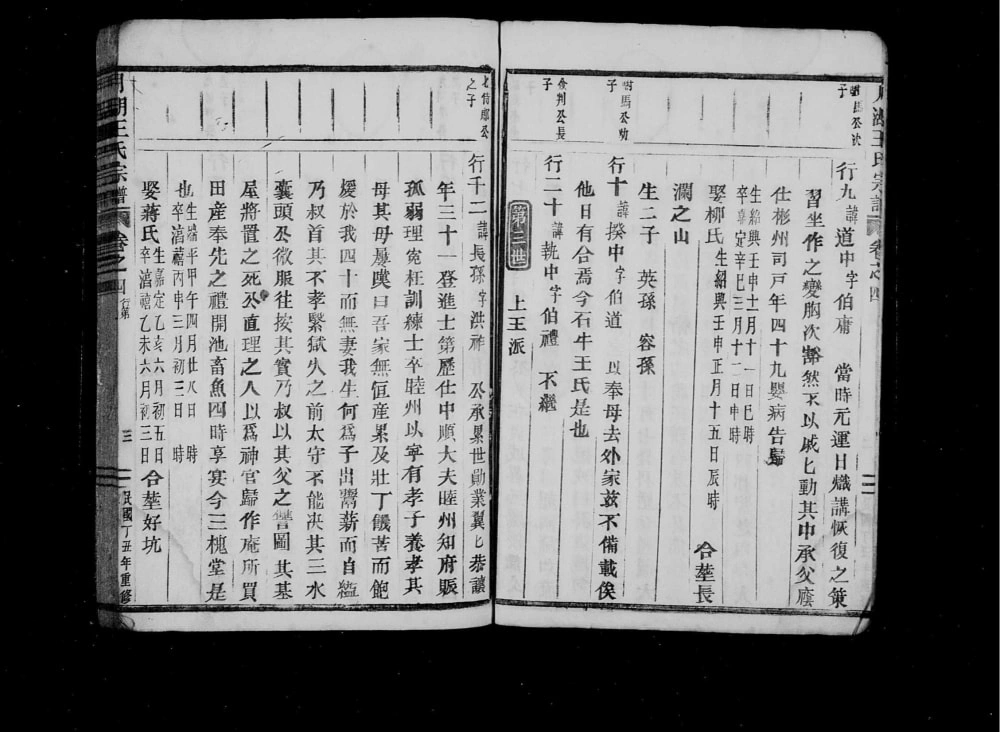 月湖王氏宗譜 卷之四
駙馬公次子
行九諱道中字伯庸 當時元運日熾講恢復之策
習坐作之變胸次豁然不以戚匕動其中承父廕
仕彬州司戶年四十九嬰病告歸
生紹興壬申十二月十一日巳時
卒嘉定辛巳三月十二日申時
娶柳氏生紹興壬申正月十五日辰時 合塟長
瀾之山
生二子 英孫 容孫
駙馬公幼子
行十諱揆中字伯道 以奉母去外家兹不備載俟
他日有合焉今石牛王氏是也
僉判公長子
行二十諱執中字伯禮 不繼
第三世 上王派
侍郎公之子
行千二諱長孫字洪祚 公承累世勛業翼匕恭讓
年三十一登進士第歷仕中順大夫睦州知府賑
孤弱理寃枉訓練士卒睦州以寧有孝子養孝其
母其母屢嘆曰吾家無恒産累及壯丁饑苦而飽
煖於我四十而無妻我生何爲子出鬻薪而自縊
乃叔首其不孝繫獄久之前太守不能决其三水
囊頭公微服往按其實乃叔以其父之讐圖其基
屋將置之死公直理之人以爲神官歸作庵所買
田産奉先之禮開池畜魚四時享宴今三槐堂是
也生端平甲午四月廿八日 時
卒滈禧丙申三月初三日 時
娶蔣氏生嘉定乙亥六月初五日
卒滈禧乙未六月初三日 合塟好坑
月湖王氏宗譜 卷之四 行第 三 民國丁丑年重修